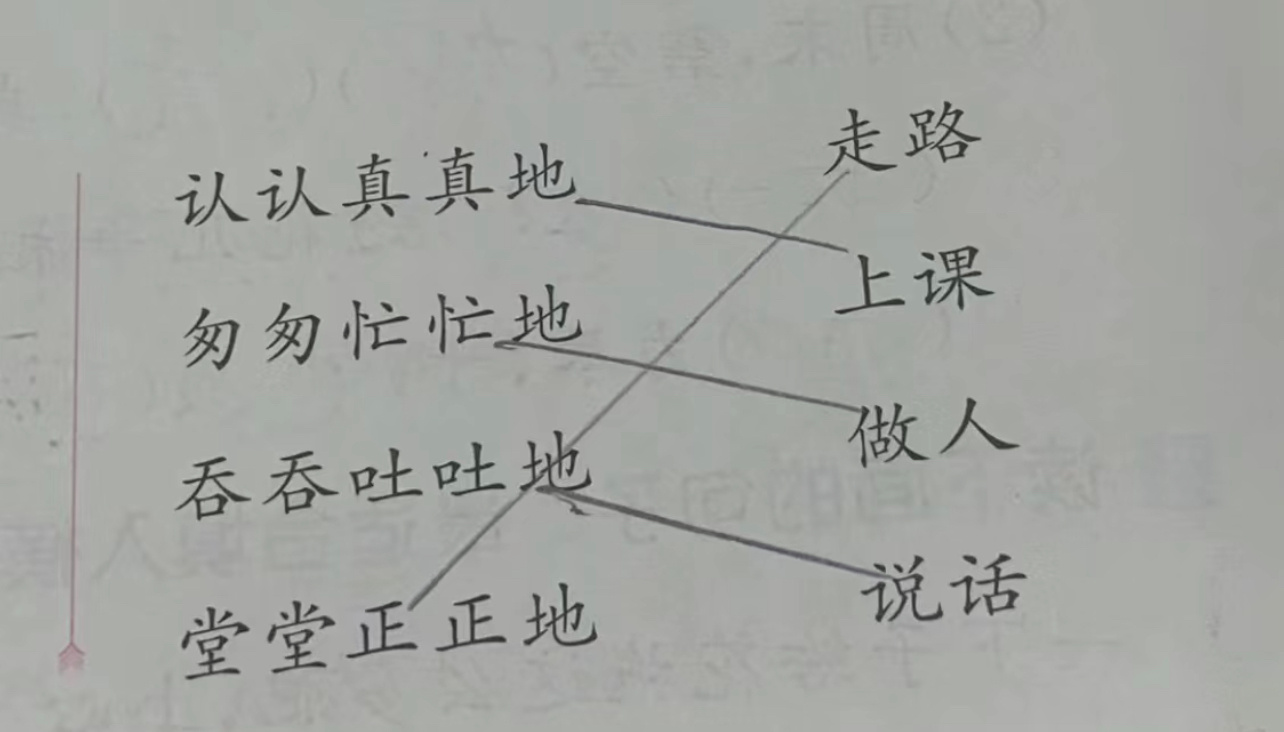 认认真真地 走路
匆匆忙忙地 上课
吞吞吐吐地 做人
堂堂正正地 说话